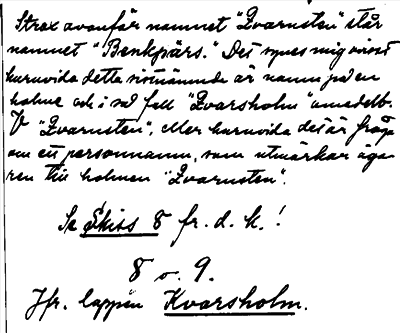 Strax ovanför namnet "Qvarnsten" står
namnet "Benkpärs." Det synes mig ovisst
huruvida detta sistnämnde är namn på en
holme och i så fall "Qvarsholm" omedelb.
V "Qvarnsten", eller huruvida det är fråga
om ett personnamn, som utmärkar äga-
ren till holmen "Qvarnsten".
Se Skiss 8 fr. d. k.!
8 o. 9.
Jfr. lappen Kvarsholm.